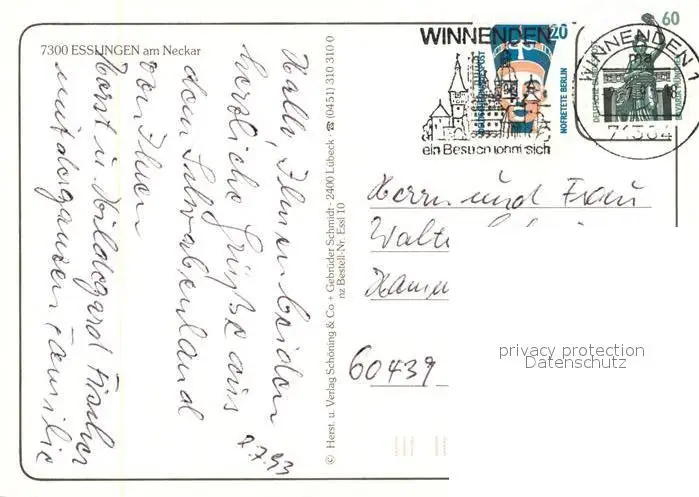 7300 ESSLINGEN am Neckar
Hallo, Ihnen beiden
herzliche Grüße aus
dem Schwabenland
von Ihren
Horst u. Hildegard Fischer
mit der ganzen Familie
2.7.93
© Herst. u. Verlag Schöning & Co + Gebrüder Schmidt · 2400 Lübeck · ☎ (0451) 310 310 0
nz Bestell-Nr. Essl 10
WINNENDEN
ein Besuch lohnt sich
20
NOFRETETE BERLIN
60
DEUTSCHE
BAVARIA MÜNCHEN
WINNENDEN 1
71364
Herrn und Frau
Walte
60439
privacy protection
Datenschutz